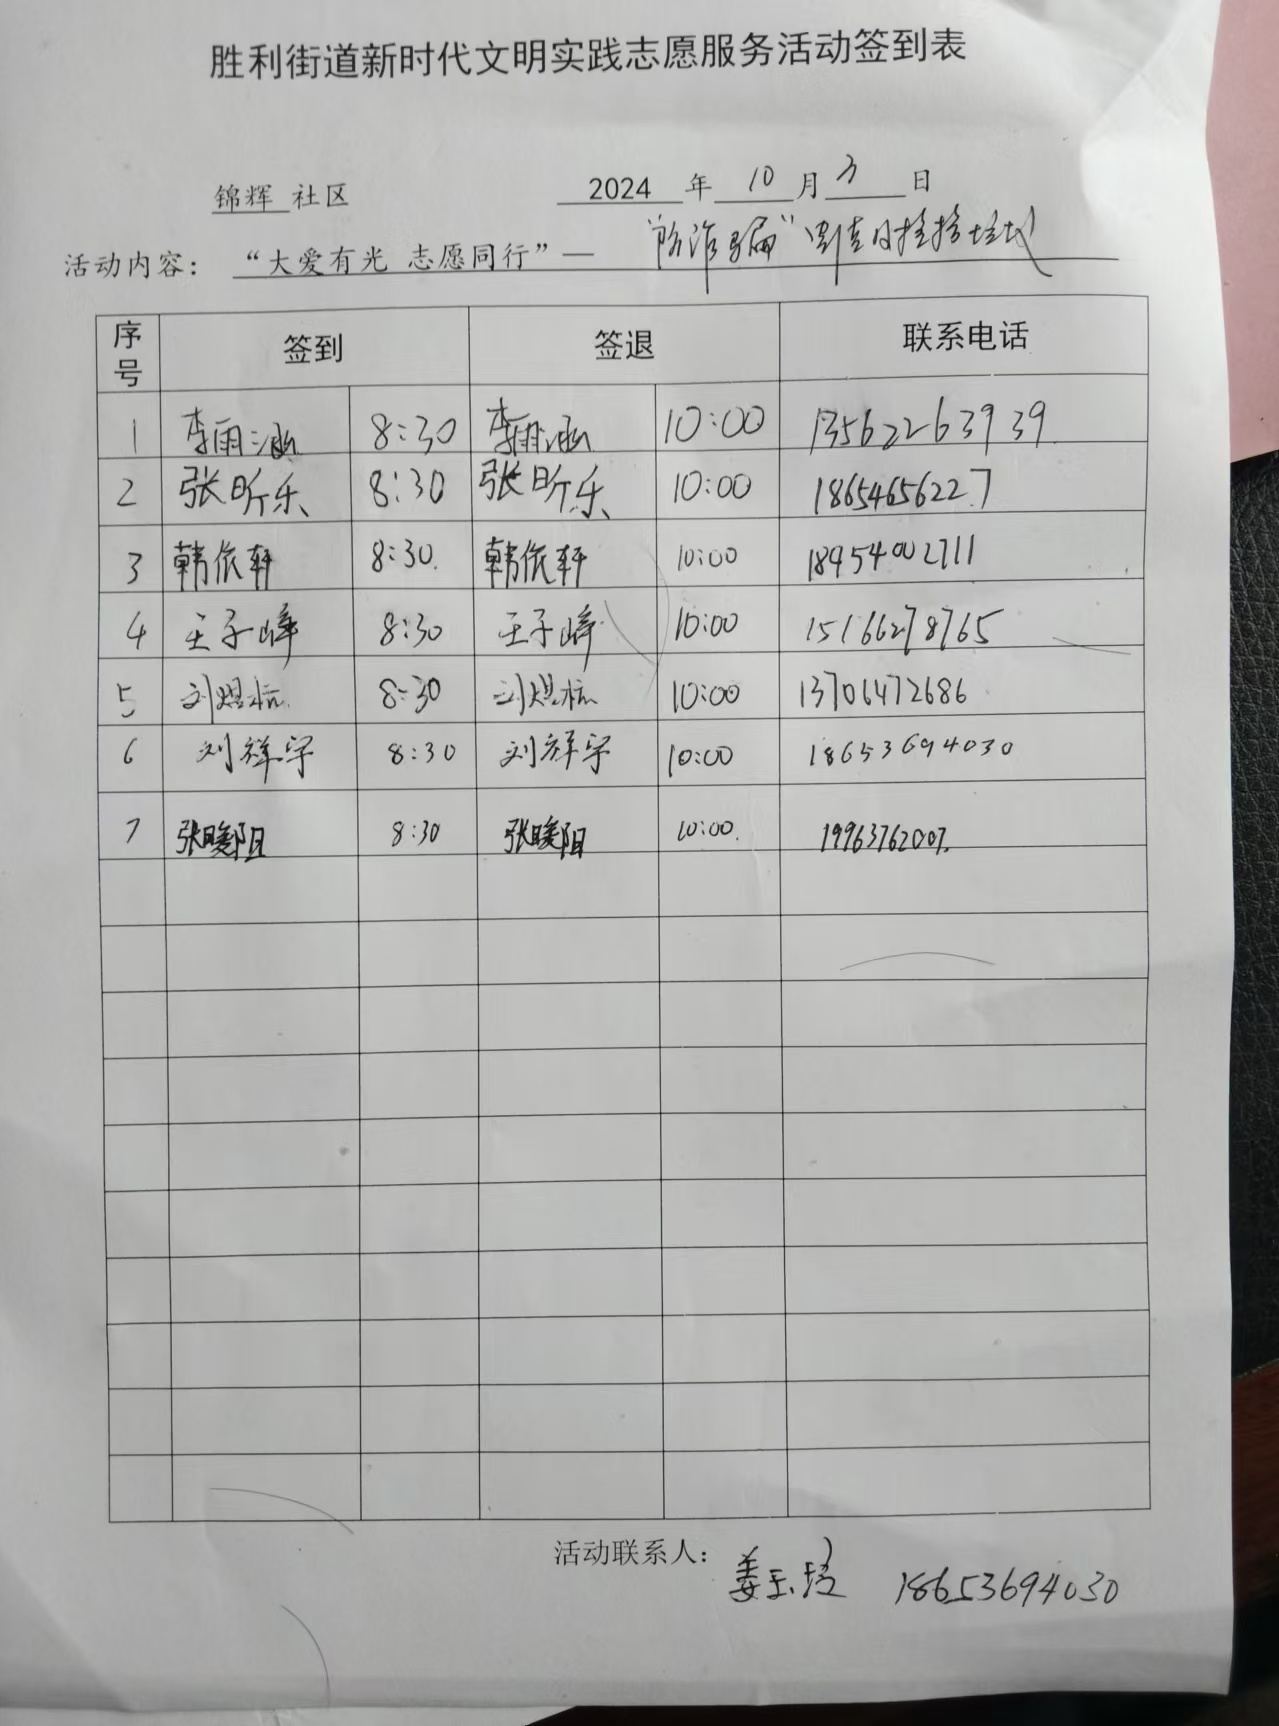 胜利街道新时代文明实践志愿服务活动签到表
锦辉 社区 2024 年 10 月 3 日
活动内容：“大爱有光 志愿同行”— “防诈骗”
序号 签到 签退 联系电话
1 李雨涵 8:30 李雨涵 10:00 13562263939
2 张昕乐 8:30 张昕乐 10:00 18654656227
3 韩依轩 8:30. 韩依轩 10:00 18954002711
4 王子峰 8:30 王子峰 10:00 15166278765
5 刘煜杭 8:30 刘煜杭 10:00 13706472686
6 刘祥宇 8:30 刘祥宇 10:00 18653694030
7 张暖阳 8:30 张暖阳 10:00. 19963762007.
活动联系人： 姜玉 18653694030